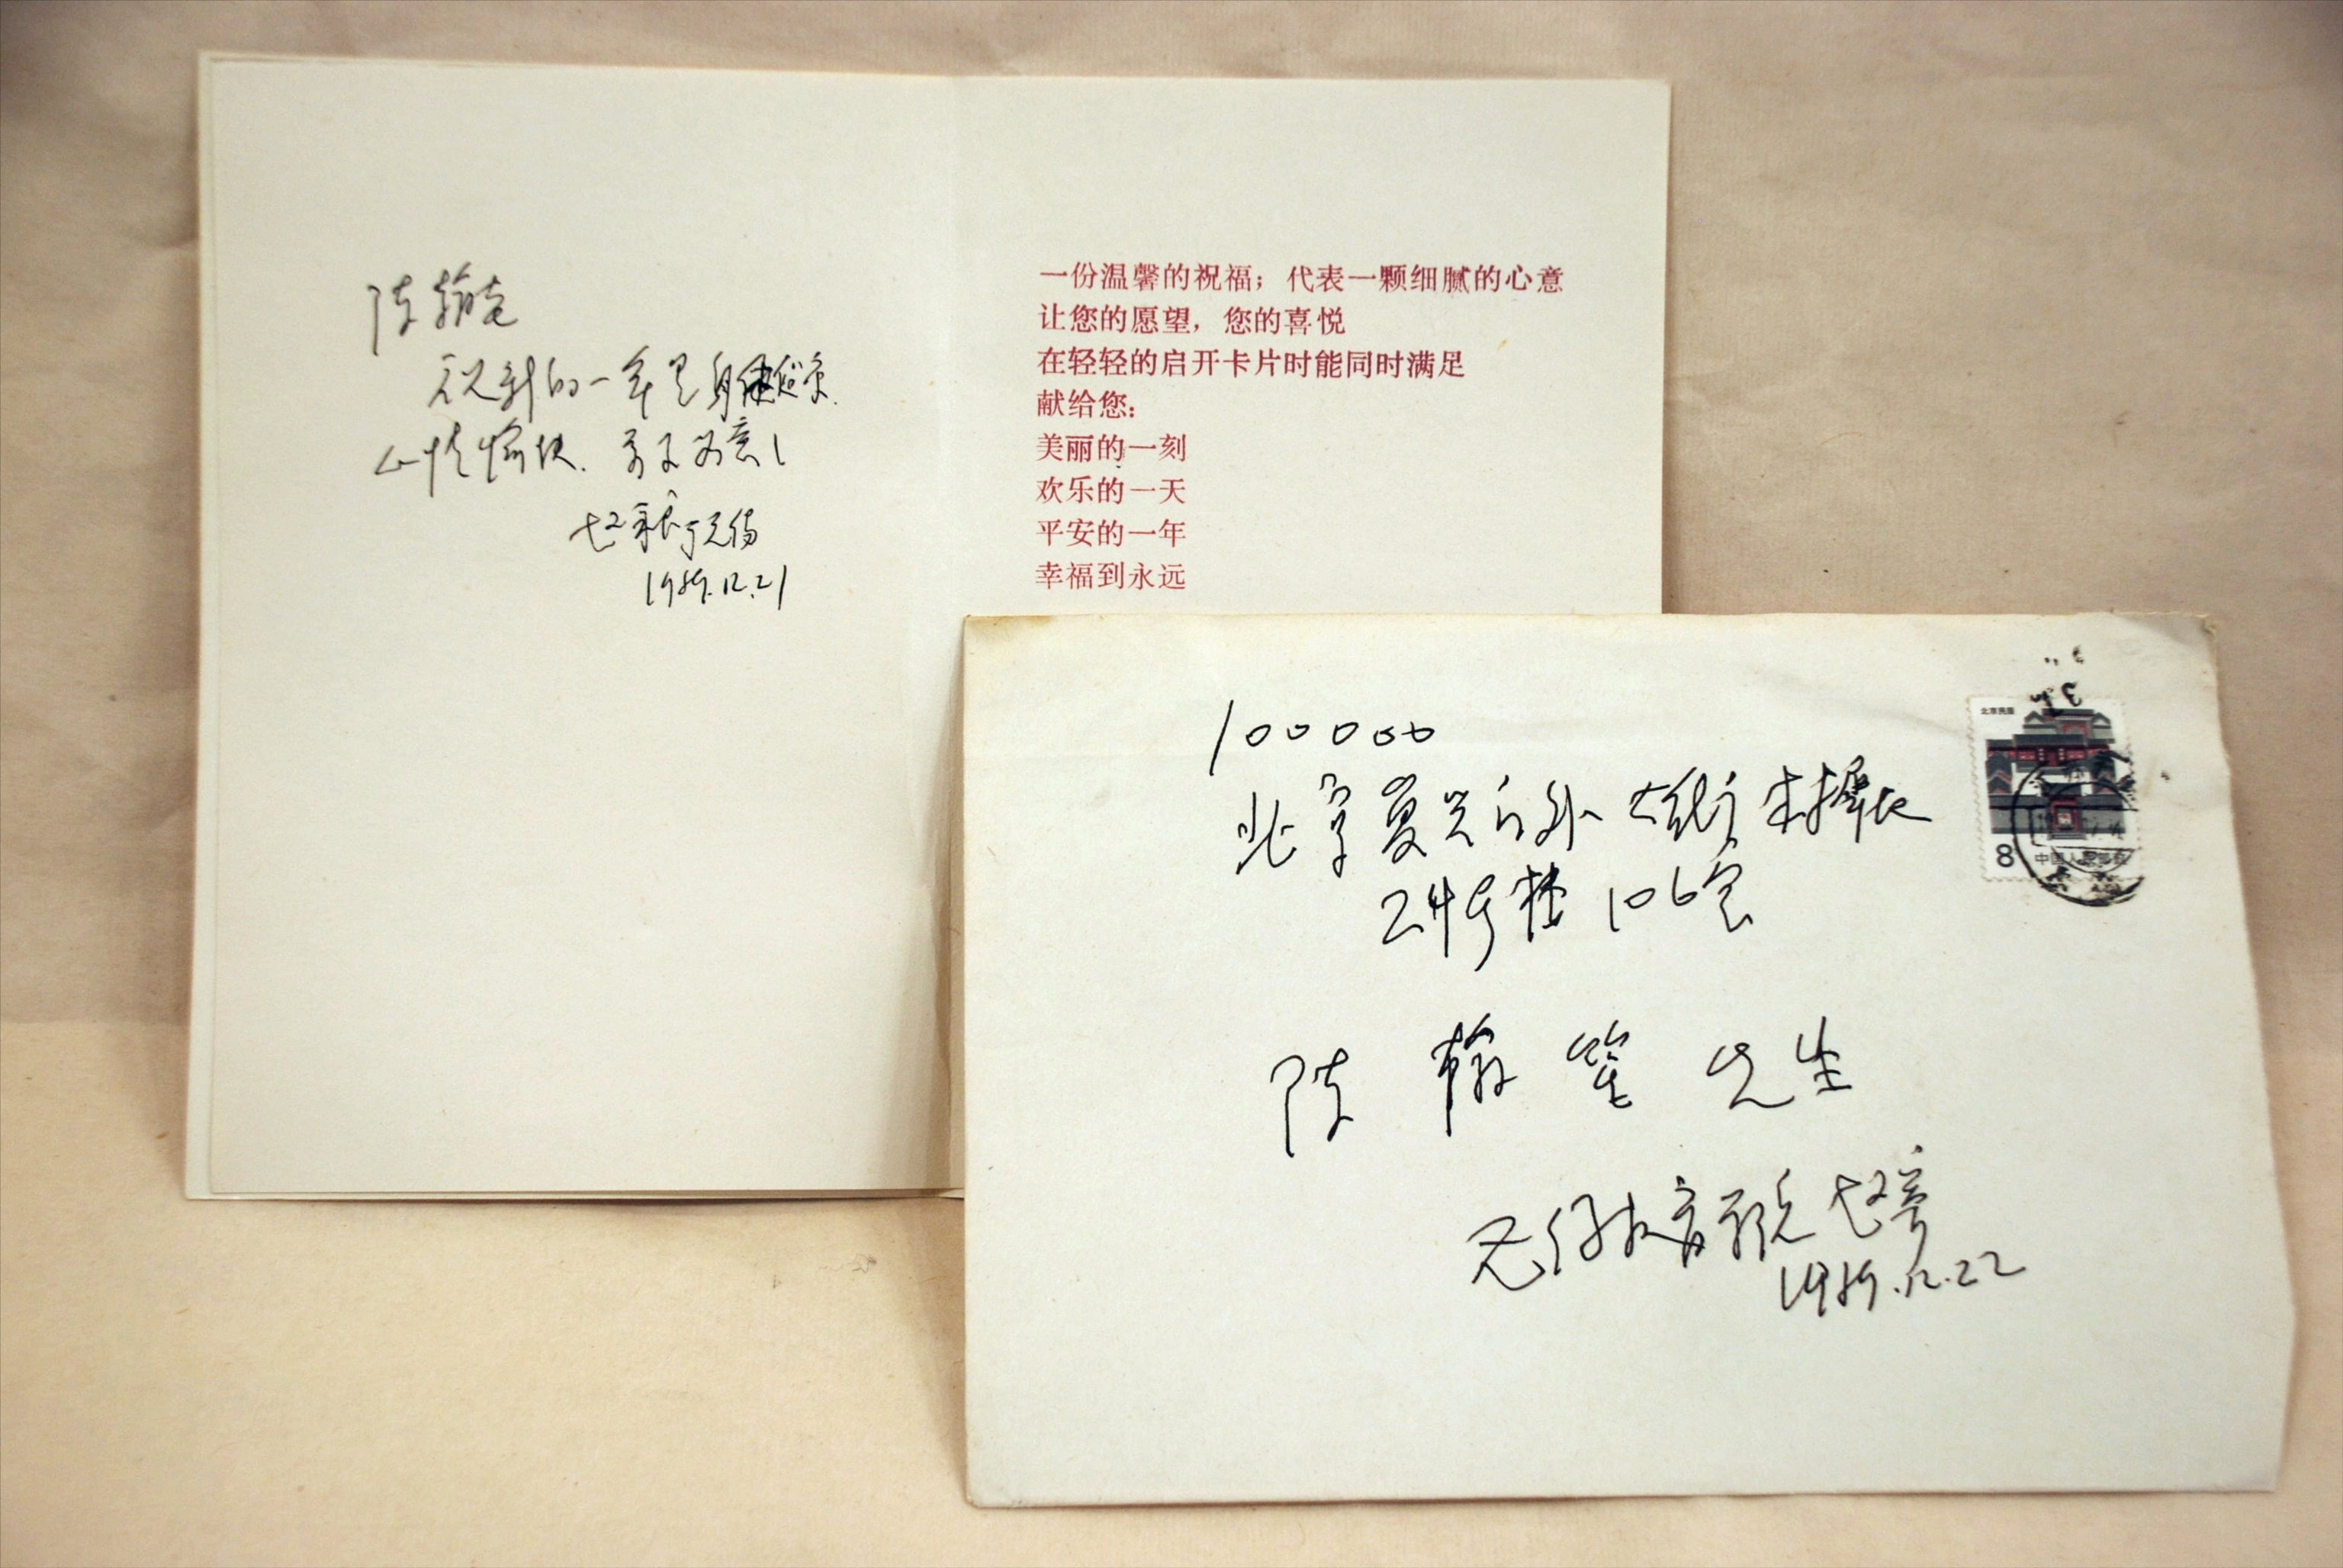 陈翰老
祝新的一年里身体健康、
心情愉快、万事如意！
1989.12.21
一份温馨的祝福；代表一颗细腻的心意
让您的愿望，您的喜悦
在轻轻的启开卡片时能同时满足
献给您：
美丽的一刻
欢乐的一天
平安的一年
幸福到永远
100000
北京复兴门外大街木樨地
24号楼106室
陈翰笙先生
1989.12.22
北京民居
8
中国人民邮政